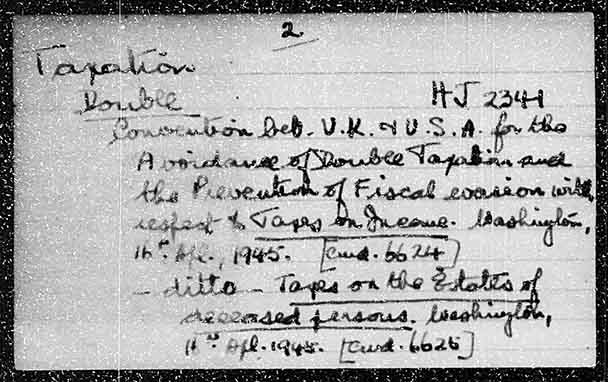 2.
Taxation
Double HJ 2341
Convention bet. U.K. & U.S.A. for the
Avoidance of Double Taxation and
the Prevention of Fiscal evasion with
respect to Taxes on Income. Washington,
16th Apl., 1945. [Cmd. 6624]
- ditto - Taxes on the Estates of
deceased persons. Washington,
16th Apl. 1945. [Cmd. 6625]